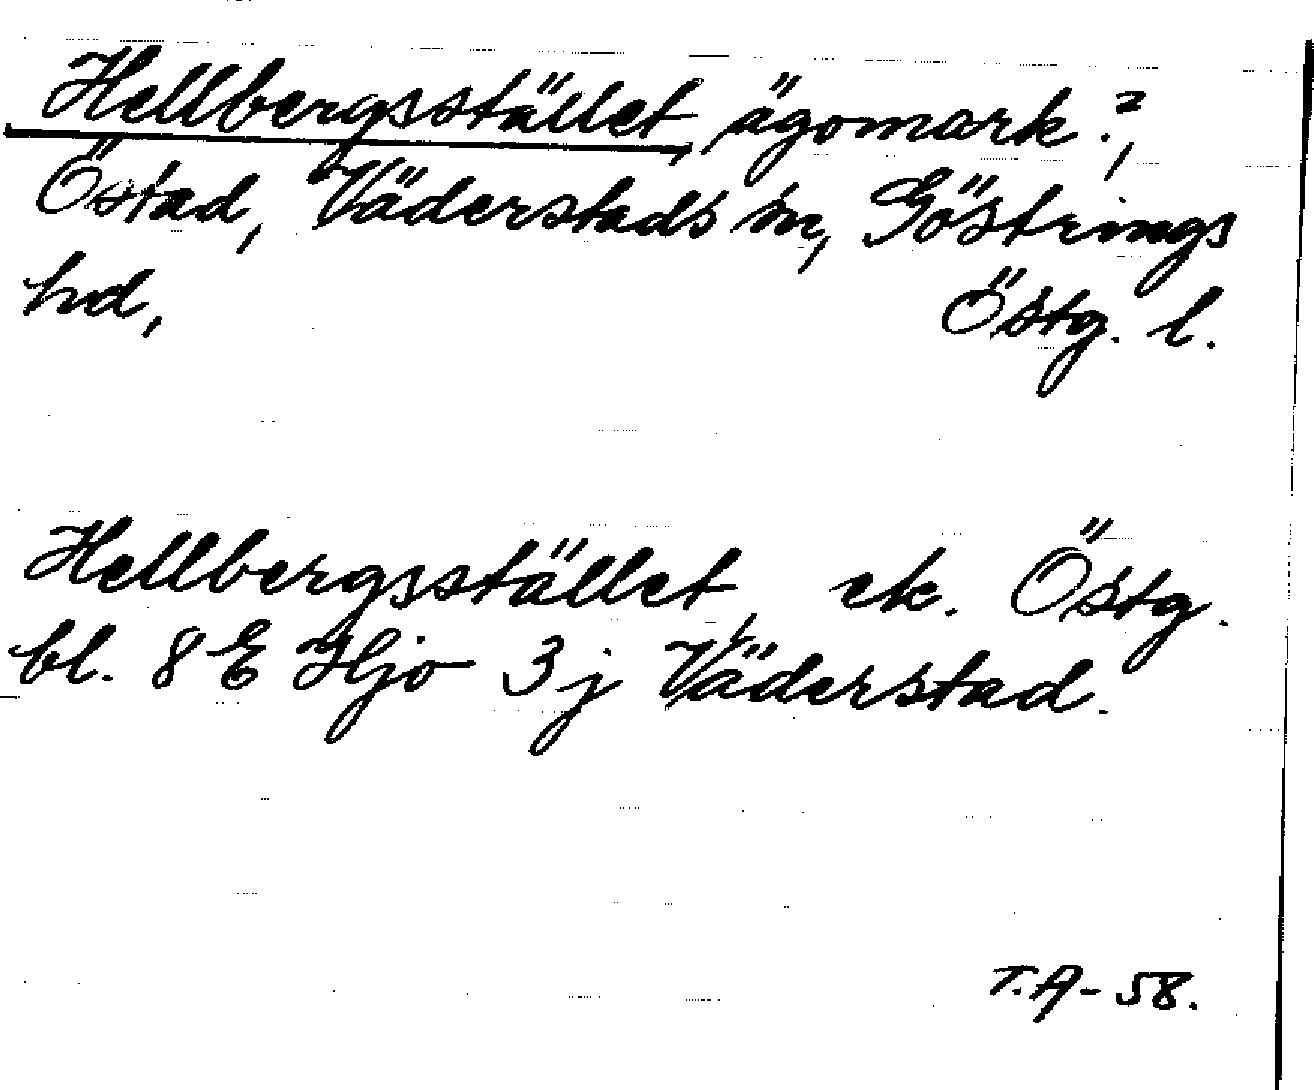 Hellbergsstället, ägomark?,
Östad, Väderstads sn, Göstrings
hd, Östg. l.
Hellbergsstället, ek. Östg.
bl. 8 E Hjo 3j Väderstad.
T.A-58.